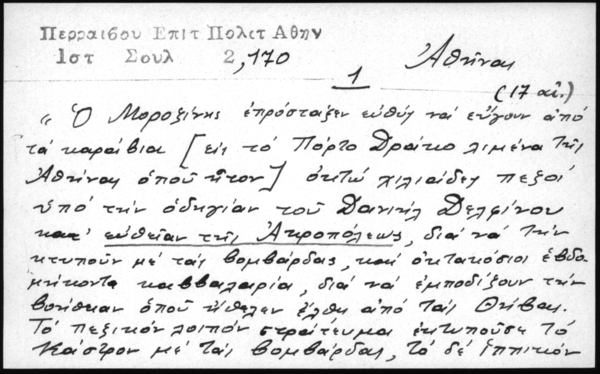 Περραιβου Επιτ Πολιτ Αθην
Ιστ Σουλ 2,170
1
Ἀθῆναι
(17 αἰ.)
"Ὁ Μοροζίνης ἐπρόσταξεν εὐθύς νά εὔγουν ἀπό
τά καράβια [εἰς τό Πόρτο Δράκο λιμένα τῆς
Ἀθήνας ὁποῦ ἦτον] ὀκτώ χιλιάδες πεζοί
ὑπό τήν ὁδηγίαν τοῦ Δανιήλ Δελφίνου
κατ' εὐθεῖαν τῆς Ἀκροπόλεως, διά νά τήν
κτυποῦν μέ ταῖς βομβάρδας, καί ὀκτακόσιοι ἑβδο-
μήκοντα καββαλαρία, διά νά ἐμποδίζουν τήν
βοήθειαν ὁποῦ ἤθελεν ἔλθη ἀπό ταῖς Θήβας.
Τό πεζικόν λοιπόν στράτευμα ἐκτυποῦσε τό
κάστρον μέ ταῖς βομβάρδας, τό δέ ἱππικόν